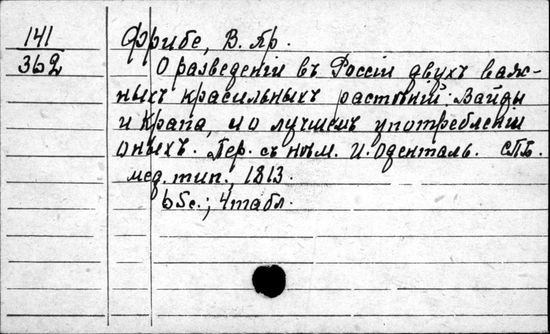 141
362
Фрибе, В. Пр.
О разведенiи въ Россiи двухъ важ-
ныхъ красильныхъ растѣнiй: Вайды
и Крапа, и о лучшемъ употребленiи
оныхъ. Пер. съ нѣм. И. Оденталь. СПБ.
мед. тип., 1813.
65с.; 4 табл.